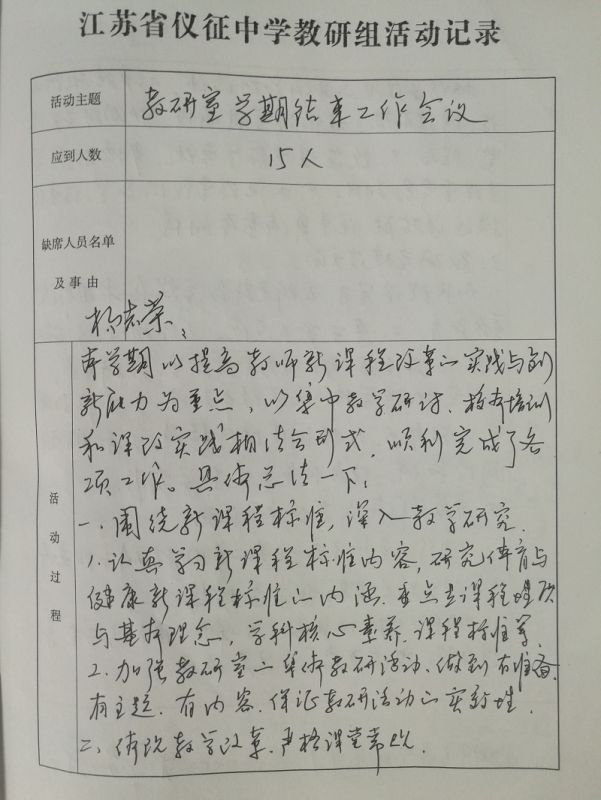 江苏省仪征中学教研组活动记录
活动主题
教研室学期结束工作会议
应到人数
15人
缺席人员名单
及事由
杨志荣;
活动过程
本学期以提高教师新课程改革的实践与创
新能力为重点,以集中教学研讨、校本培训
和课改实践相结合形式,顺利完成了各
项工作。具体总结一下:
一、围绕新课程标准,深入教学研究.
1.认真学习新课程标准内容,研究体育与
健康新课程标准的内涵.重点是课程性质
与基本理念,学科核心素养.课程标准等
2.加强教研室的集体教研活动、做到有准备
有主题.有内容.保证教研活动的实效性.
二、体现教学改革.严格课堂常规.